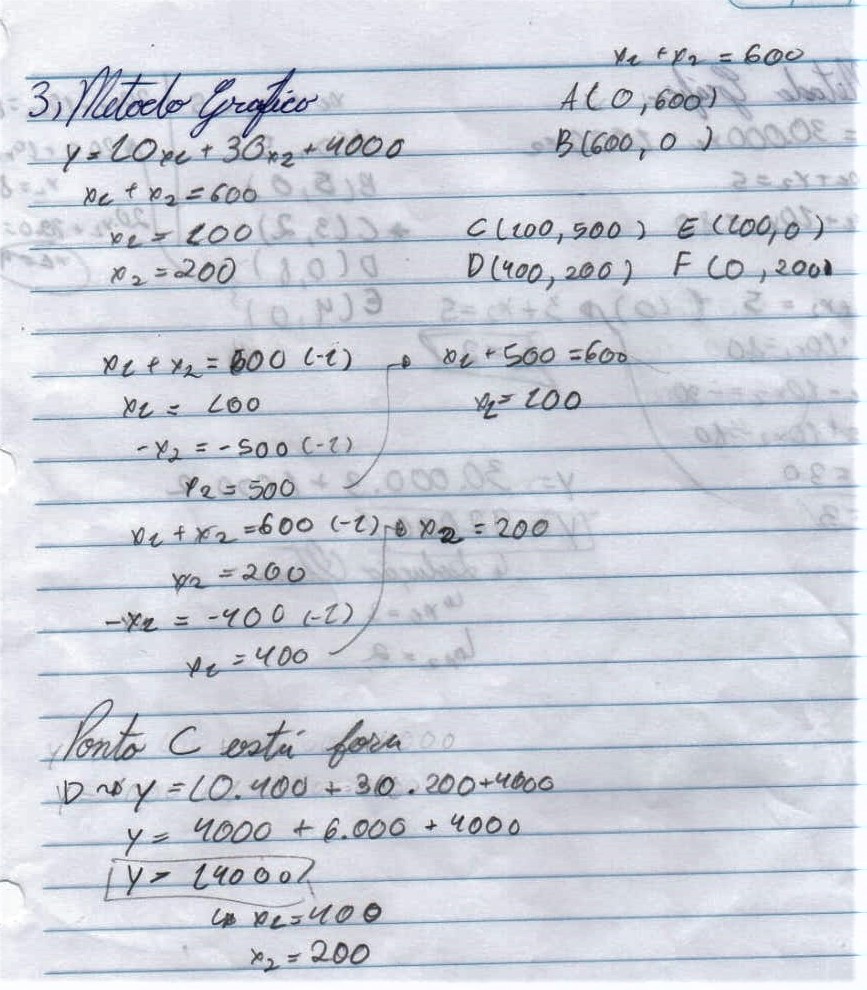 x1 + x2 = 600
3, Metodo Grafico
A(0,600)
y = 10x1 + 30x2 + 4000
B(600,0)
x1 + x2 = 600
x1 = 100
C(100,500) E(100,0)
x2 = 200
D(400,200) F(0,200)
x1 + x2 = 600 (-1) → x1 + 500 = 600
x1 = 100
x1 = 100
-x2 = -500 (-1)
x2 = 500
x1 + x2 = 600 (-1) → x2 = 200
x2 = 200
-x1 = -400 (-1)
x1 = 400
Ponto C está fora
D → y = 10.400 + 30.200 + 4000
y = 4000 + 6.000 + 4000
y = 14000
↳ x1 = 400
x2 = 200